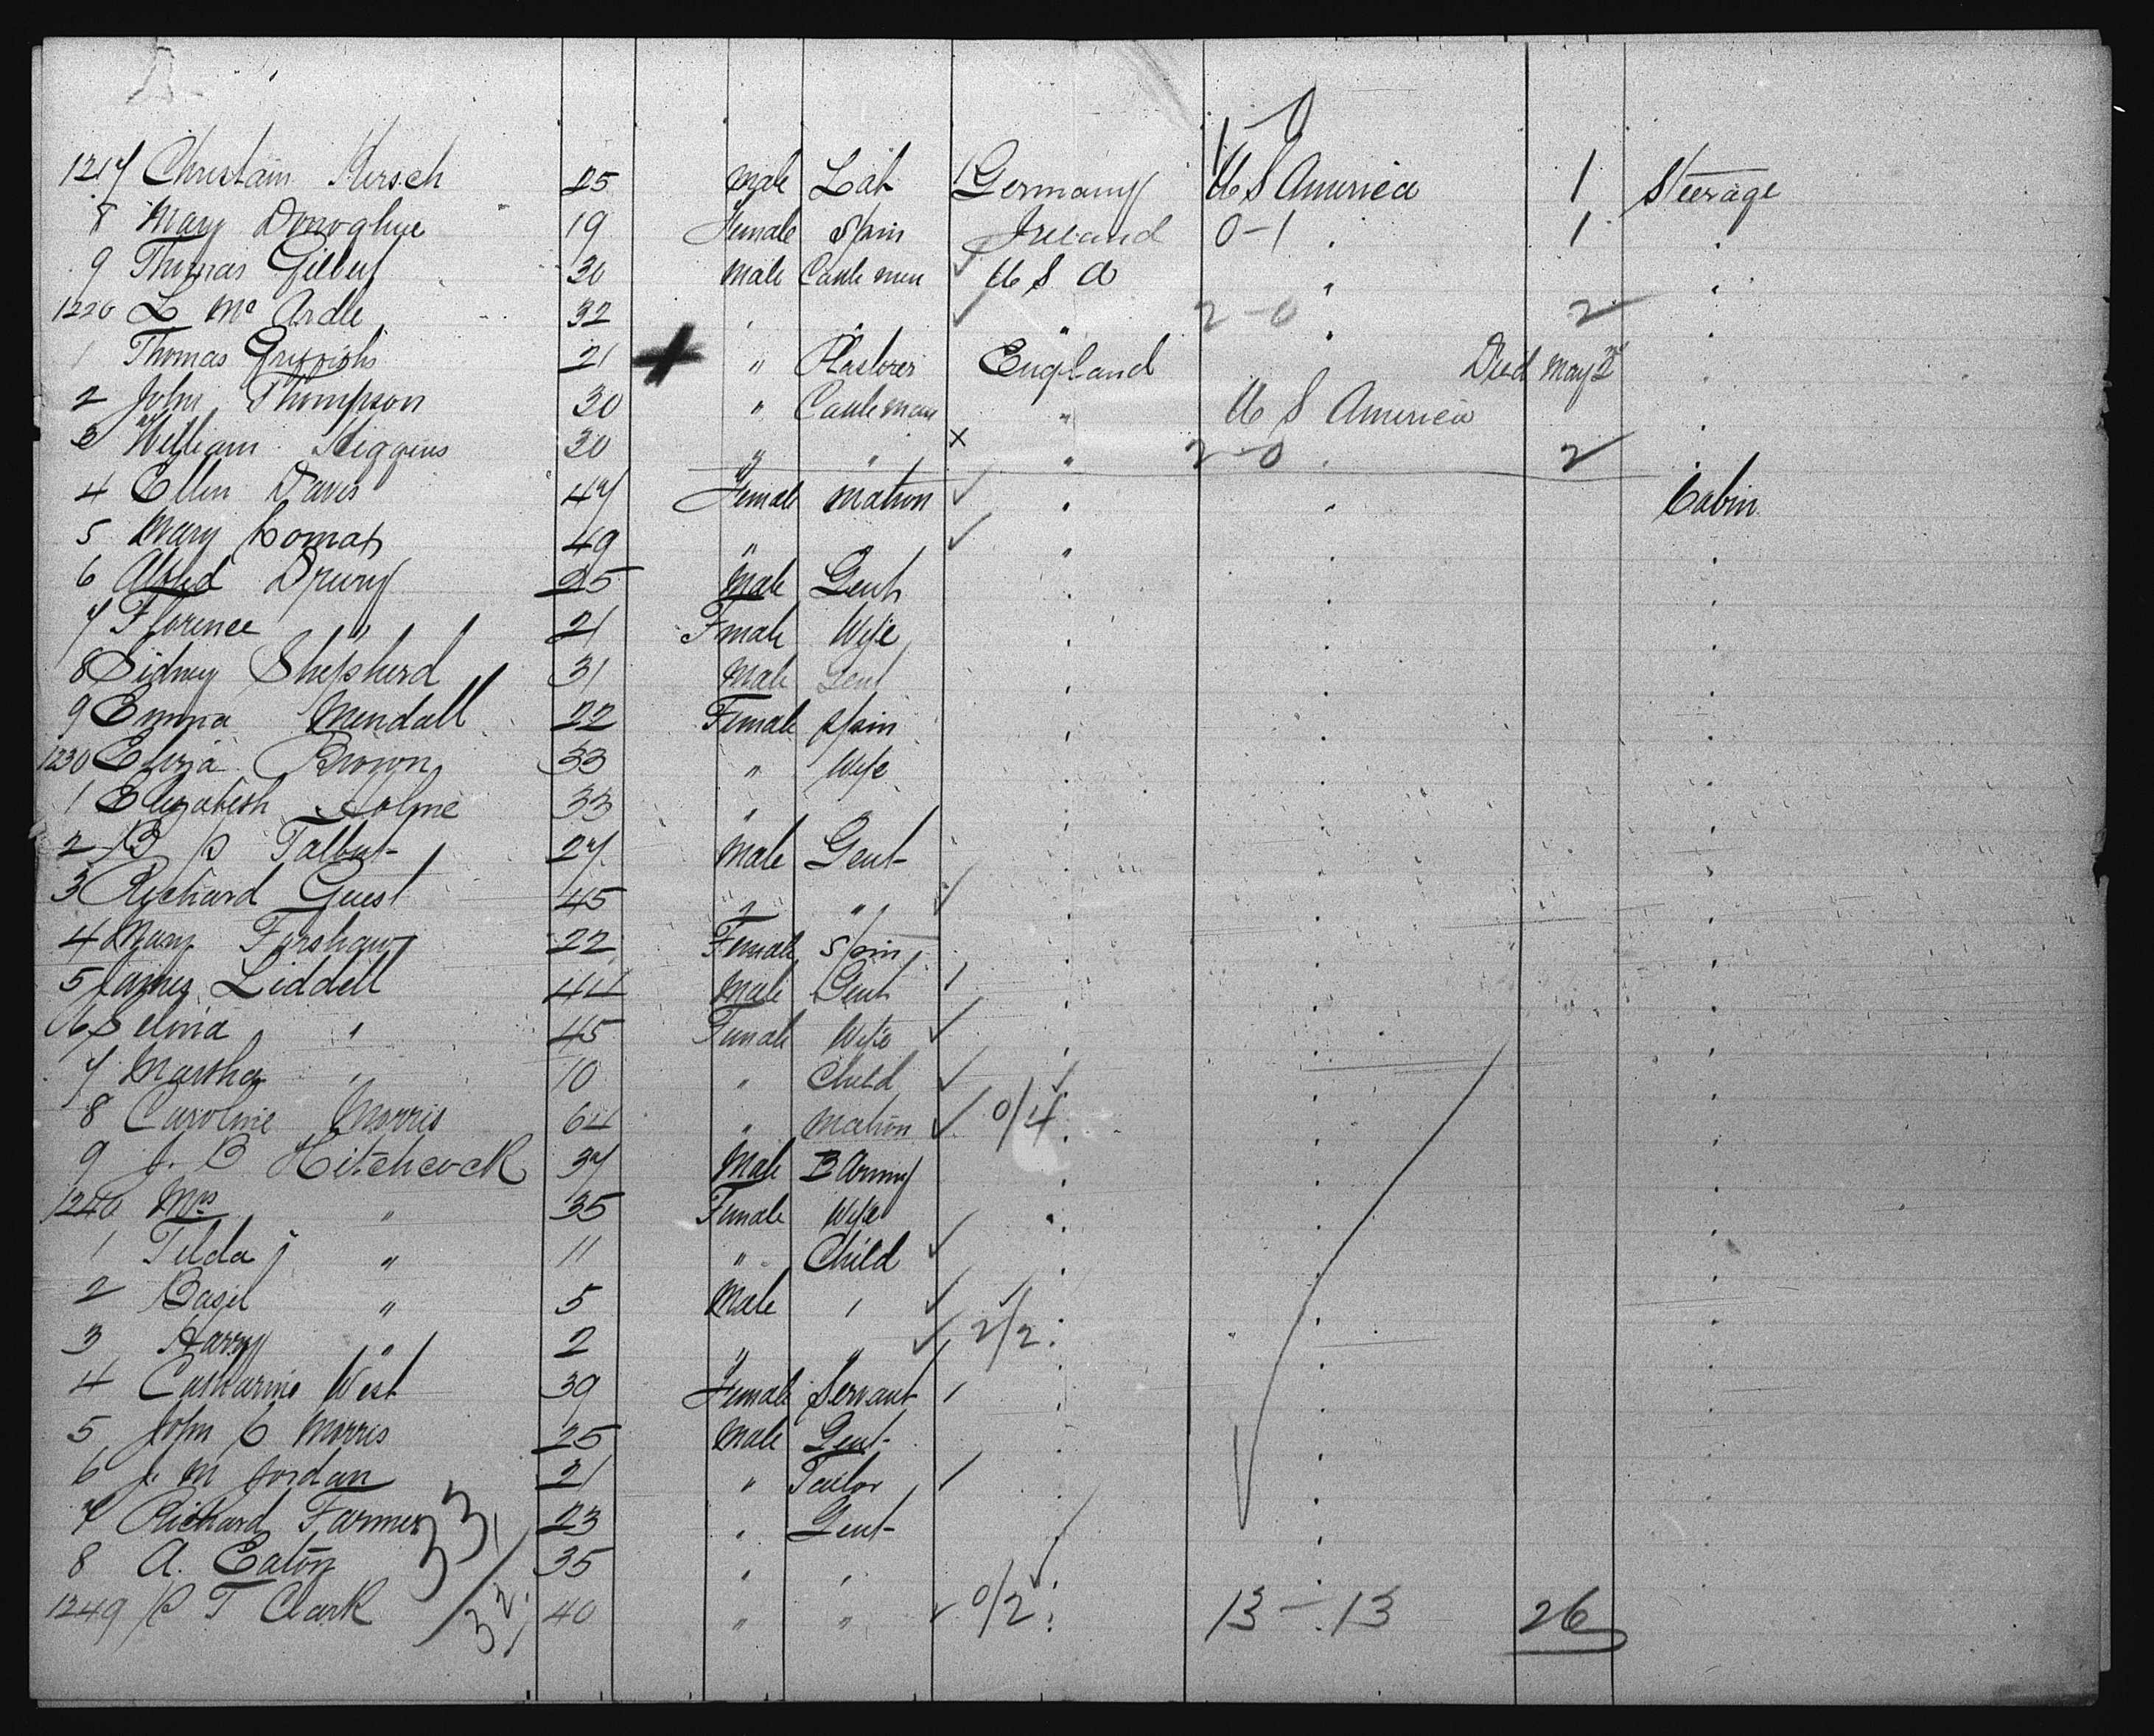 1217 Christain Kirsch 25 Male Lab Germany U S America 1 Steerage
8 Mary Donoghue 19 Female Spin Ireland 0-1 " 1 "
9 Thomas 30 Male Cattle men U S A " "
1220 L Mc Ardle 32 " " " 2-0 " 2 "
1 Thomas Griffiths 21 " Plasterer England Died May 2nd "
2 John Thompson 30 " Cattleman " U S America "
3 William Higgins 30 " " " 2-0 " 2 "
4 Ellen Davis 47 Female Matron " " Cabin
5 Mary 49 " " " "
6 Drury 25 Male Gent " " "
7 Florence " 21 Fmale Wife " " "
8 Sidney Shepherd 31 Male Gent " " "
9 Emma Mendall 22 Female Spin " " "
1230 Eliza Brown 33 " Wife " " "
1 Elizabeth Holme 33 " " " "
2 B P Talbut 27 Male Gent " " "
3 Richard Guest 45 " " " " "
4 Mary Furshaw 22 Female Spin " " "
5 James Liddell 44 Male Gent " " "
6 Selina " 45 Female Wife " " "
7 Martha " 10 " Child " " "
8 Caroline Morris 64 " Matron 0/4 " " "
9 J. B Hitchcock 37 Male B Army " " "
1240 Mrs " 35 Female Wife " " "
1 Tilda J " 11 " Child " " "
2 Basil " 5 Male " " " "
3 Harry " 2 " " 2/2 " " "
4 Catharine West 39 Female Servant " " "
5 John C Morris 25 Male Gent " " "
6 J. M Jordan 21 " Tailor " " "
7 Richard Farmer 33 23 " Gent " " "
8 A. Eaton 35 " " " "
1249 P T Clark 32 40 " " 0/2 " 13-13 26